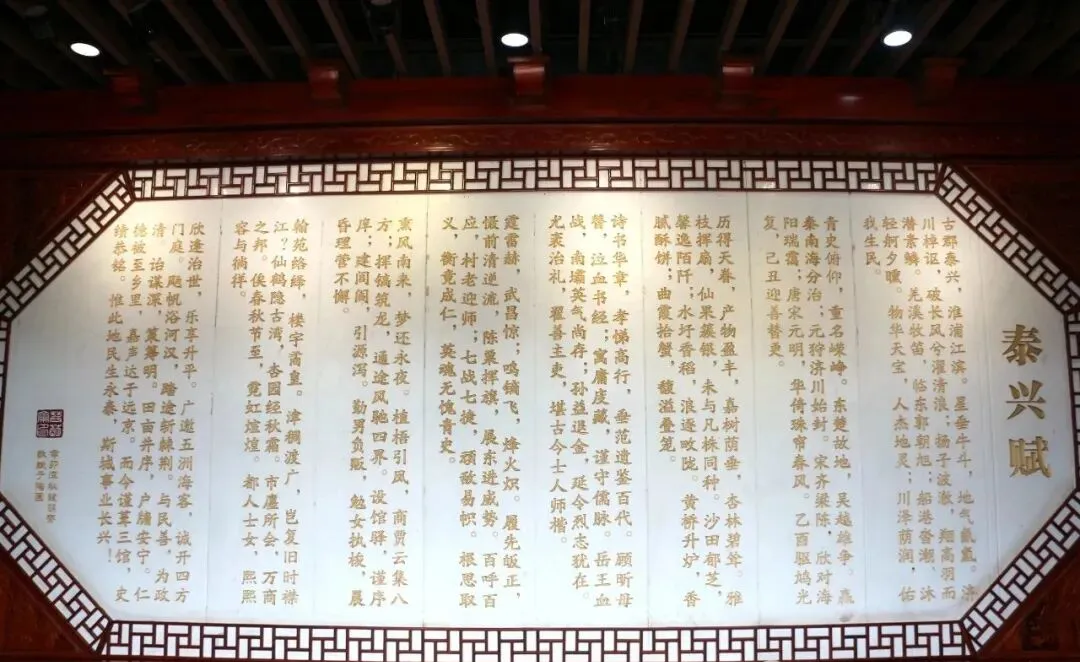 泰兴赋
古郡泰兴，淮浦江滨。星垂牛斗，地气氤氲。济
川棹讴，破长风兮濯清浪，杨子波澈，翔高羽而
潜素鳞。羌溪牧笛，临东郭朝旭；船港蚕潮，沐
轻舸夕曛。物华天宝，人杰地灵，川泽荫润，佑
我生民。
青史俯仰，重名嵘峥。东楚故地，吴越雄争。嬴
秦南海分治；元狩济川始封。宋齐梁陈，欣对海
阳瑞霭；唐宋元明，华倚珠帘春风。乙酉驱鸠光
复，己丑迎善替更。
历得天眷，产物盈丰，嘉树荫垂，杏林碧耸。雅
枝挥扇，仙果簇银，未与凡株同种。沙田郁芝，
馨逸陌阡；水圩香稻，浪逐畋陇。黄桥升炉，香
腻酥饼；曲霞抬蟹，馥溢叠笼。
诗书华章，孝悌高行，垂范遗鉴百代。顾昕母
瞽，泣血书经；寓庸庋藏，谨守儒脉。岳王血
战，南壩英气尚存；孙益退金，延令烈志犹在。
尤袤治礼，翟善主吏，堪古今士人师楷。
霆雷赫，武昌惊；鸣镝飞，烽火炽。履先皈正，
慑前清逆流，陈粟挥旗，展东进威势。百呼百
应，村老迎师；七战七捷，顽敌易帜。根思取
义，衡竟成仁，英魂无愧青史。
熏风南来，梦还永夜。植梧引风，商贾云集八
方；挥镐筑龙，通途风驰四界。设馆驿，谨序
庠；建闾阎，引源泻。勤男负贩，勉女执梭，晨
昏理管不懈。
翰苑络绎，楼宇甫皇。津稠渡广，岂复旧时襟
江？仙鹤隐古湾，杏园经秋霜。市廛所会，万商
之邦。俟春秋节至，霓虹煌煌。都人士女，熙熙
容与徜徉。
欣逢治世，乐享升平。广邀五洲海客，诚开四方
门庭。飏帆浴河汉，踏途斩棘荆。与民善，为政
清。诒谋深，策筹明。田亩井序，户牖安宁。仁
德被至乡里，嘉声达于远京。而今谨草三馆，史
绩恭铭。惟此地民生永泰，斯城事业长兴！